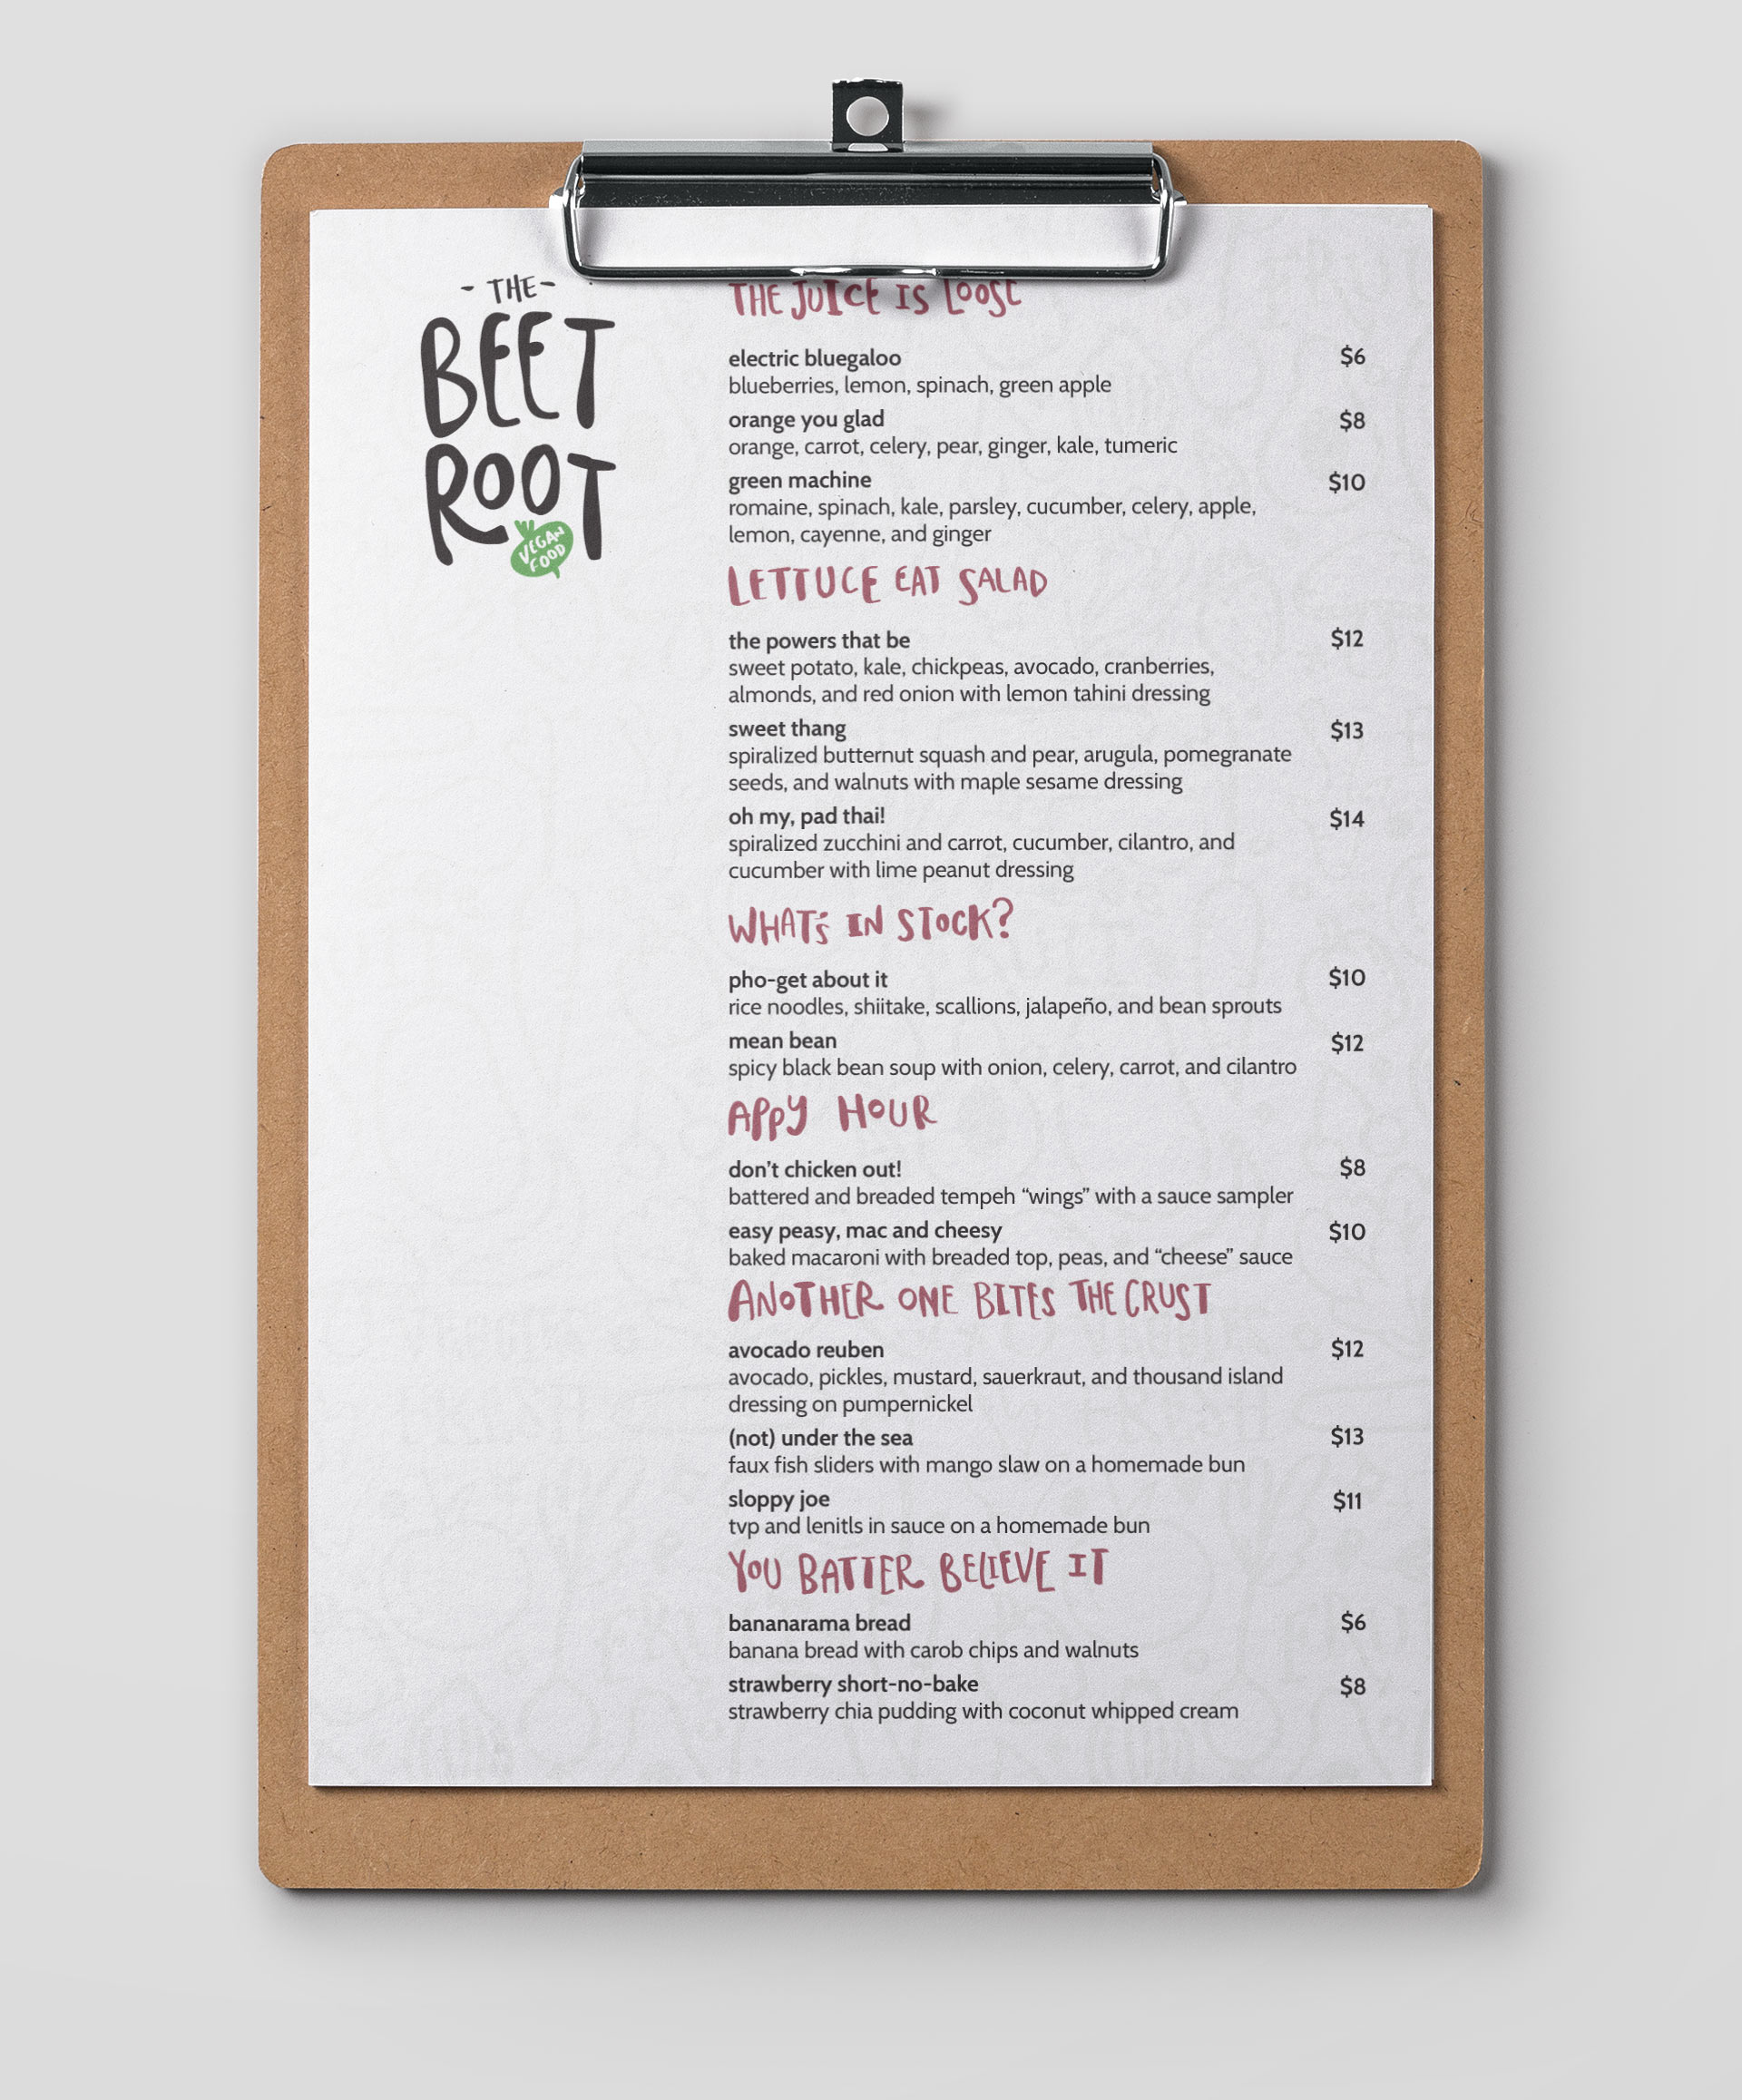 - THE -
BEET
ROOT
VEGAN
FOOD
THE JUICE IS LOOSE
electric bluegaloo $6
blueberries, lemon, spinach, green apple
orange you glad $8
orange, carrot, celery, pear, ginger, kale, tumeric
green machine $10
romaine, spinach, kale, parsley, cucumber, celery, apple,
lemon, cayenne, and ginger
LETTUCE EAT SALAD
the powers that be $12
sweet potato, kale, chickpeas, avocado, cranberries,
almonds, and red onion with lemon tahini dressing
sweet thang $13
spiralized butternut squash and pear, arugula, pomegranate
seeds, and walnuts with maple sesame dressing
oh my, pad thai! $14
spiralized zucchini and carrot, cucumber, cilantro, and
cucumber with lime peanut dressing
WHAT'S IN STOCK?
pho-get about it $10
rice noodles, shiitake, scallions, jalapeño, and bean sprouts
mean bean $12
spicy black bean soup with onion, celery, carrot, and cilantro
APPY HOUR
don't chicken out! $8
battered and breaded tempeh “wings” with a sauce sampler
easy peasy, mac and cheesy $10
baked macaroni with breaded top, peas, and “cheese” sauce
ANOTHER ONE BITES THE CRUST
avocado reuben $12
avocado, pickles, mustard, sauerkraut, and thousand island
dressing on pumpernickel
(not) under the sea $13
faux fish sliders with mango slaw on a homemade bun
sloppy joe $11
tvp and lenitls in sauce on a homemade bun
YOU BATTER BELIEVE IT
bananarama bread $6
banana bread with carob chips and walnuts
strawberry short-no-bake $8
strawberry chia pudding with coconut whipped cream